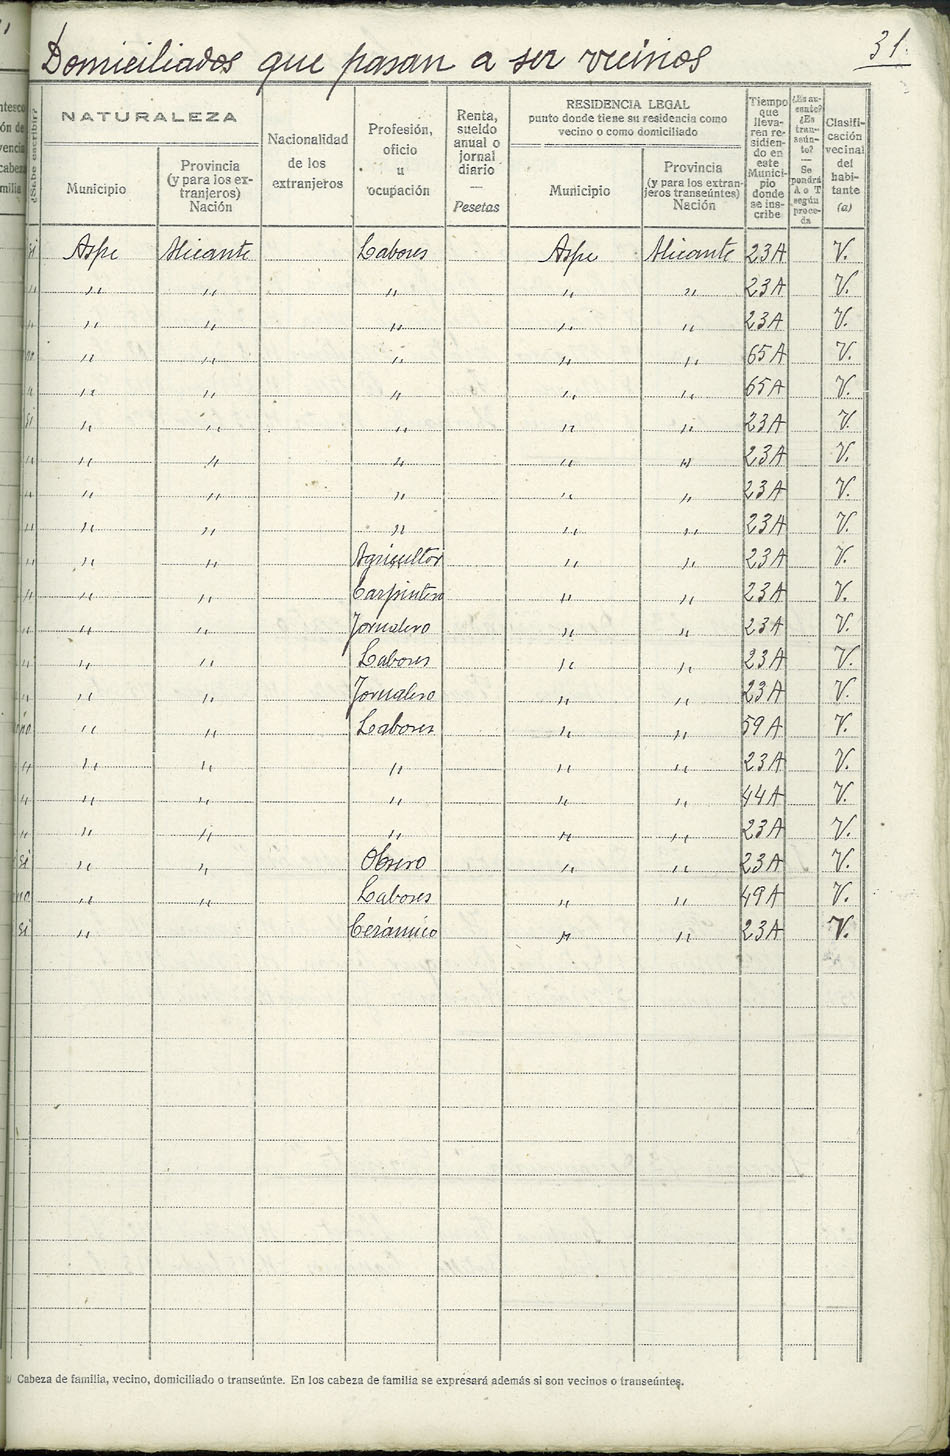 Domiciliados que pasan a ser vecinos
31.
¿Sabe escribir?
NATURALEZA
Municipio
Provincia
(y para los ex-
tranjeros)
Nación
Nacionalidad
de los
extranjeros
Profesión,
oficio
u
ocupación
Renta,
sueldo
anual o
jornal
diario
—
Pesetas
RESIDENCIA LEGAL
punto donde tiene su residencia como
vecino o como domiciliado
Municipio
Provincia
(y para los extran-
jeros transeúntes)
Nación
Tiempo
que
lleva-
ren re-
sidien-
do en
este
Munici-
pio
donde
se ins-
cribe
¿Es au-
sente?
¿Es
tran-
seún-
te?
—
Se
pondrá
A o T
según
proce-
da
Clasifi-
cación
vecinal
del
habi-
tante
(a)
si Aspe Alicante Labores Aspe Alicante 23 A V.
" " " " " " 23 A V.
" " " " " " 23 A V.
no " " " " " 65 A V.
" " " " " " 65 A V.
si " " " " " 23 A V.
" " " " " " 23 A V.
" " " " " " 23 A V.
" " " " " " 23 A V.
" " " Agricultor " " 23 A V.
" " " Carpintero " " 23 A V.
" " " Jornalero " " 23 A V.
" " " Labores " " 23 A V.
" " " Jornalero " " 23 A V.
no " " Labores " " 59 A V.
" " " " " " 23 A V.
" " " " " " 44 A V.
" " " " " " 23 A V.
si " " Obrero " " 23 A V.
no " " Labores " " 49 A V.
si " Cerámico " " 23 A V.
Cabeza de familia, vecino, domiciliado o transeúnte. En los cabeza de familia se expresará además si son vecinos o transeúntes.